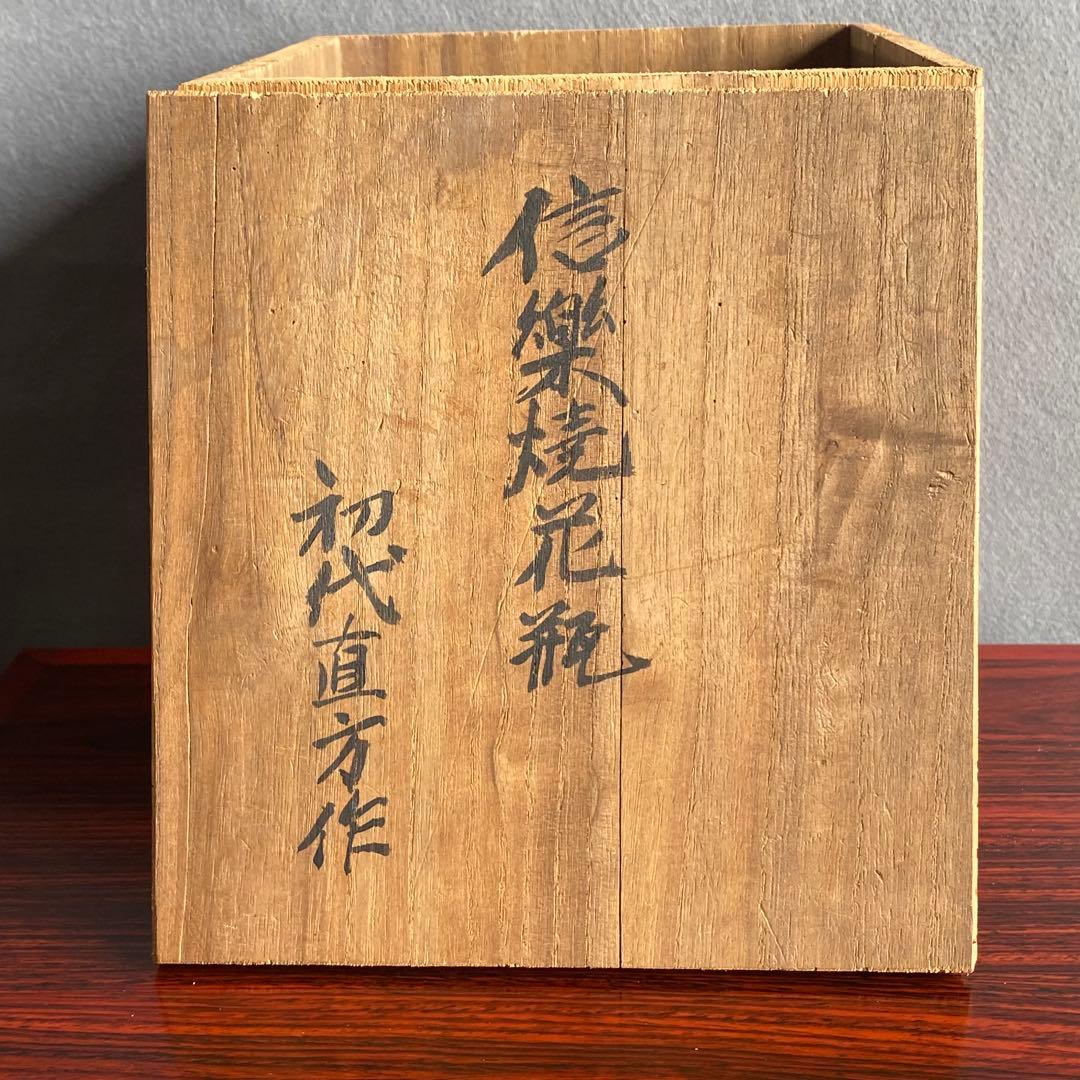 信樂焼花瓶
初代直方作